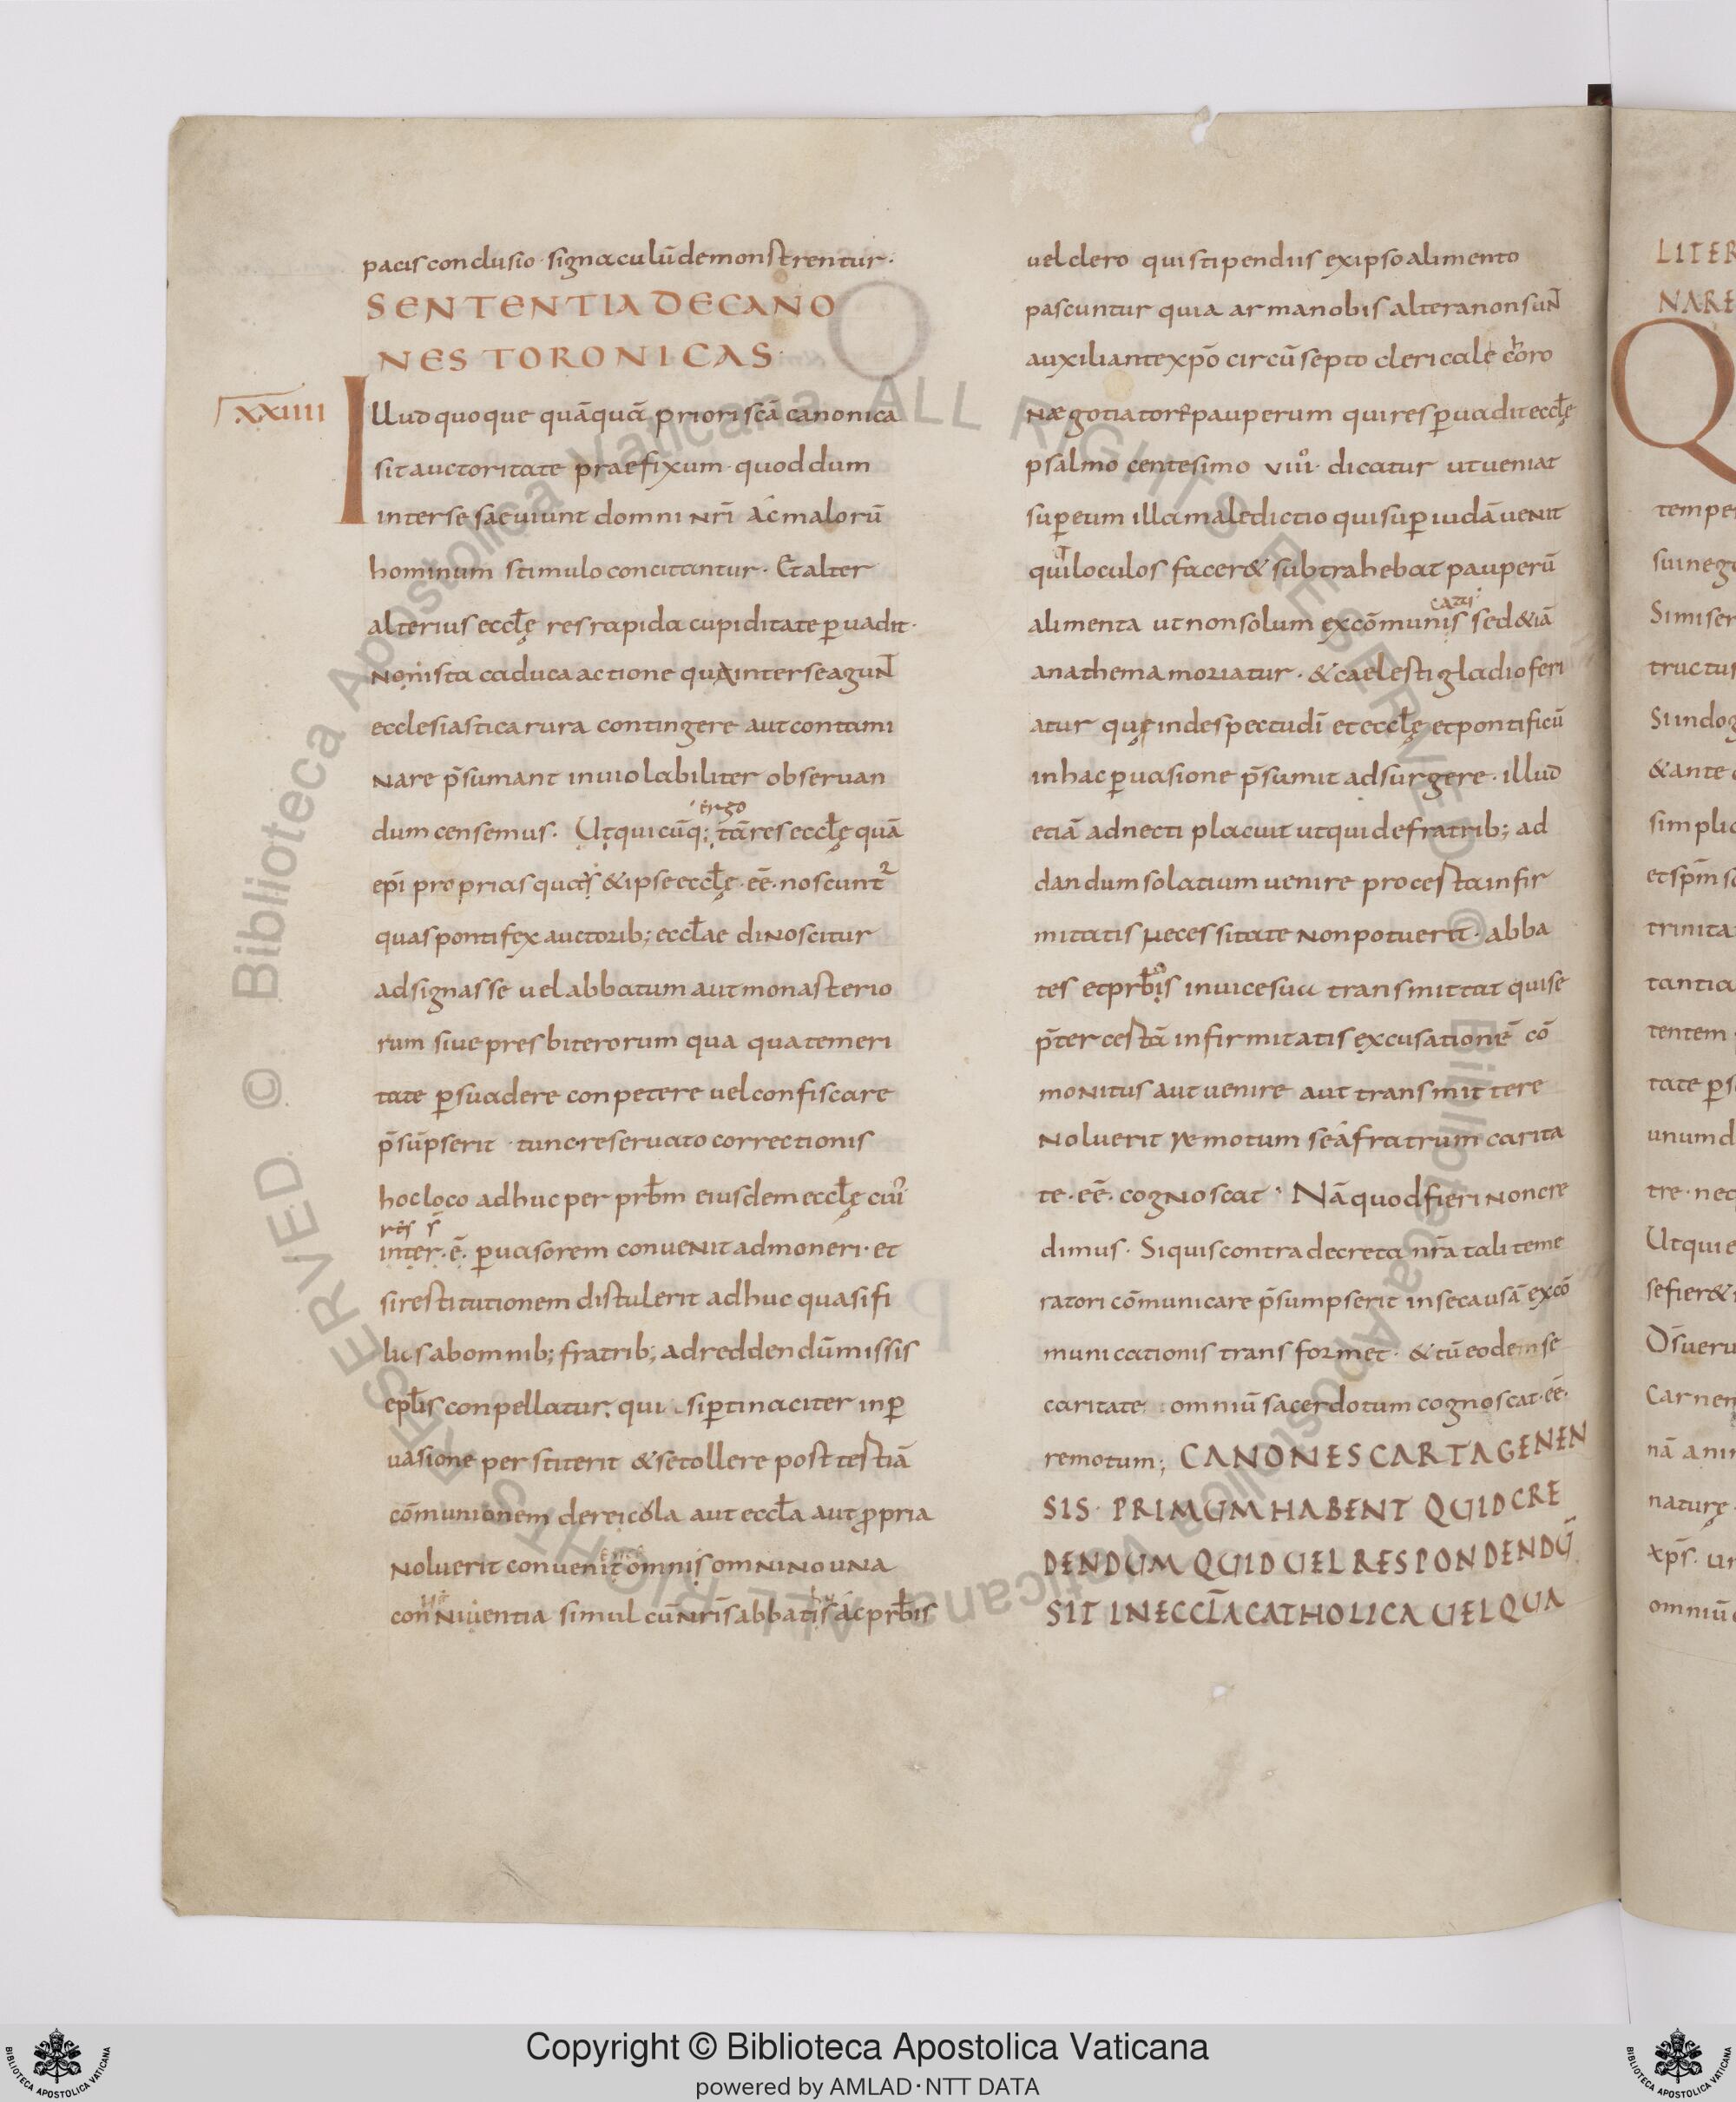 pacis conclusio · signaculū demonstrentur ·
SENTENTIA DE CANO
NES TORONICAS ·
XXIIII
Illud quoque quāquā priori scā canonica
sit auctoritate praefixum · quod dum
inter se saeviunt domni nri āc malorū
hominum stimulo concitantur · Et alter
alterius eccłę res rapida cupiditate p̱ uadit ·
Non ista caduca actione quā inter se agunt
ecclesiastica rura contingere aut contami
nare p̄sumant inuiolabiliter obseruan
dum censemus · Ut quicūq; tā res eccłę quā
ergo
ep̄i proprias quas & ipse eccłę · eē · noscunt᷑
quas pontifex auctorib; eccłae dinoscitur
adsignasse uel abbatum aut monasterio
rum siue presbiterorum qua qua temeri
tate p̱suadere conpetere uel confiscare
p̄sūpserit · tunc · reseruato correctionis
hoc loco adhuc per prb̄m eiusdem eccłę cui
res s̄
inter · ē · p̱uasorem conuenit admoneri · et
si restitutionem distulerit adhuc quasi fi
lius ab omnib; fratrib; ad reddendū missis
epłis conpellatur · qui si p̱tinaciter in p̱
uasione perstiterit & se tollere post testiā
cōmunionem de reicola aut eccła aut ꝓpria
noluerit conuenit omnis omnino una
conniuentia simul cū nris abbatis āc prb̄is
uel clero qui stipendiis ex ipso alimento
pascuntur quia arma nobis altera non sunt
auxiliante xpō circūsepto clericale choro
næ gotiatorē pauperum qui res p̱uadit eccłę
psalmo centesimo viii · dicatur ut ueniat
sup̱ eum illa maledictio qui sup̱ iudā uenit
qui loculos facer& subtrahebat pauperū
alimenta ut non solum excōmunis sed &iā
cati
anathema moriatur · & caelesti gladio feri
atur quę in despectu dī et eccłę et pontificū
in hac p̱uasione p̄sumit adsurgere · illud
etiā adnecti placuit ut qui de fratrib; ad
dandum solatium uenire pro cesta infir
mitatis necessitate non potuerit · abba
tes et prb̄is inuice sua transmittat qui se
p̄ter cestā infirmitatis excusationē cō
monitus aut uenire aut transmittere
noluerit remotum se ā fratrum carita
te · eē · cognoscat · Nā quod fieri non cre
dimus · Si quis contra decreta nrā tali teme
ratori cōmunicare p̄sumpserit in se causā excō
municationis transformet · & cū eodem se
caritate omniū sacerdotum cognoscat · eē ·
remotum; CANONES CARTAGENEN
SIS · PRIMUM HABENT QUID CRE
DENDUM QUID UEL RESPONDENDŪ
SIT IN ECCŁA CATHOLICA UEL QUA
LITER
NARE
Q
tempe
sui neg
Si miser
tructus
Si in dog
& ante
simplic
et spm̄ s
trinita
tantia
tentem
tate p̱s
unum d
tre · nec
Ut qui e
se fier&
D̄s ueru
Carnem
nā anim
naturę
xp̄s · un
omniū
Copyright © Biblioteca Apostolica Vaticana
powered by AMLAD · NTT DATA
BIBLIOTECA APOSTOLICA VATICANA
BIBLIOTECA APOSTOLICA VATICANA
© Biblioteca Apostolica Vaticana ALL RIGHTS RESERVED © Biblioteca Apostolica Vaticana ALL RIGHTS RESERVED